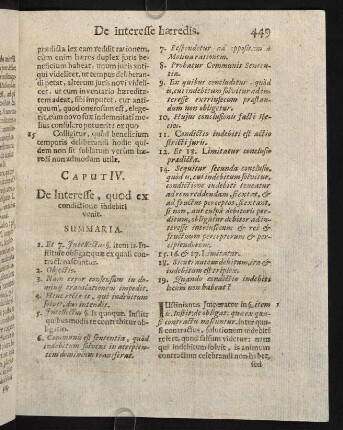 De interesse hæredis.
449
prædicta lex eam reddit rationem,
cùm enim hæres duplex juris be-
neficium habeat, unum juris anti-
qui videlicet, ut tempus deliberan-
di petat, alterum juris novi videli-
cet, ut cum inventario hæredita-
tem adeat, sibi imputet, cur anti-
quum, quod onerosum est, elege-
rit, cum novo suæ indemnitati me-
lius consulere potuerit ex quo
15
Colligitur, quòd beneficium
temporis deliberandi hodie qui-
dem non sit sublatum verùm hæ-
redi non admodum utile.
CAPUT IV.
De Interesse, quod ex
condictione indebiti
venit.
SUMMARIA.
1. Et 7. Intellectus §. item is. In-
stitutis de obligat. quæ ex quasi con-
tractu nascuntur.
2. Objectio.
3. Nam error consensum in do-
minij translationem impedit.
4. Hinc elicit, qui indebitum
solvit,
5. Intellectus §. Is quoque. Instit.
quibus modis re contrahitur ob-
ligatio.
6. Communis est sententia, quòd
indebitum solvens in accipien-
tem dominium transferat.
7. Respondetur ad oppositam à
Molina rationem.
8. Probatur Communis Senten-
tia.
9. Ex quibus concluditur, quòd
is, cui indebitum solvitur ad in-
teresse extrinsecum præstan-
dum non obligetur.
10. Hujus conclusionis facti spe-
cies.
11. Condictio indebiti est actio
stricti juris.
12. Et 18. Limitatur conclusio
prædicta.
14. Sequitur secunda conclusio,
quòd is, cui indebitum solvitur,
condictione indebiti teneatur
ad rem reddendam, sicut et, &
ad fructus perceptos, si extant,
si non, aut culpâ debitoris perdi-
ti, obligatur debitor ad in-
teresse intrinsecum & rei &
fructuum perceptorum & per-
cipiendorum.
15. 16. & 17. Limitatur.
18. Sicuti autem debitum, ita & in-
debitum est triplex.
19. Quando condictio indebiti
locum non habeat?
1
JUstinianus Imperator in §. item
is. Instit. de obligat. quæ ex qua-
si contractu nascuntur. inter qua-
si contractus, solutionem indebiti
refert, quod falsum videtur: nam
qui solvit indebitum, is animum
contractum celebrandi non habet,
sed